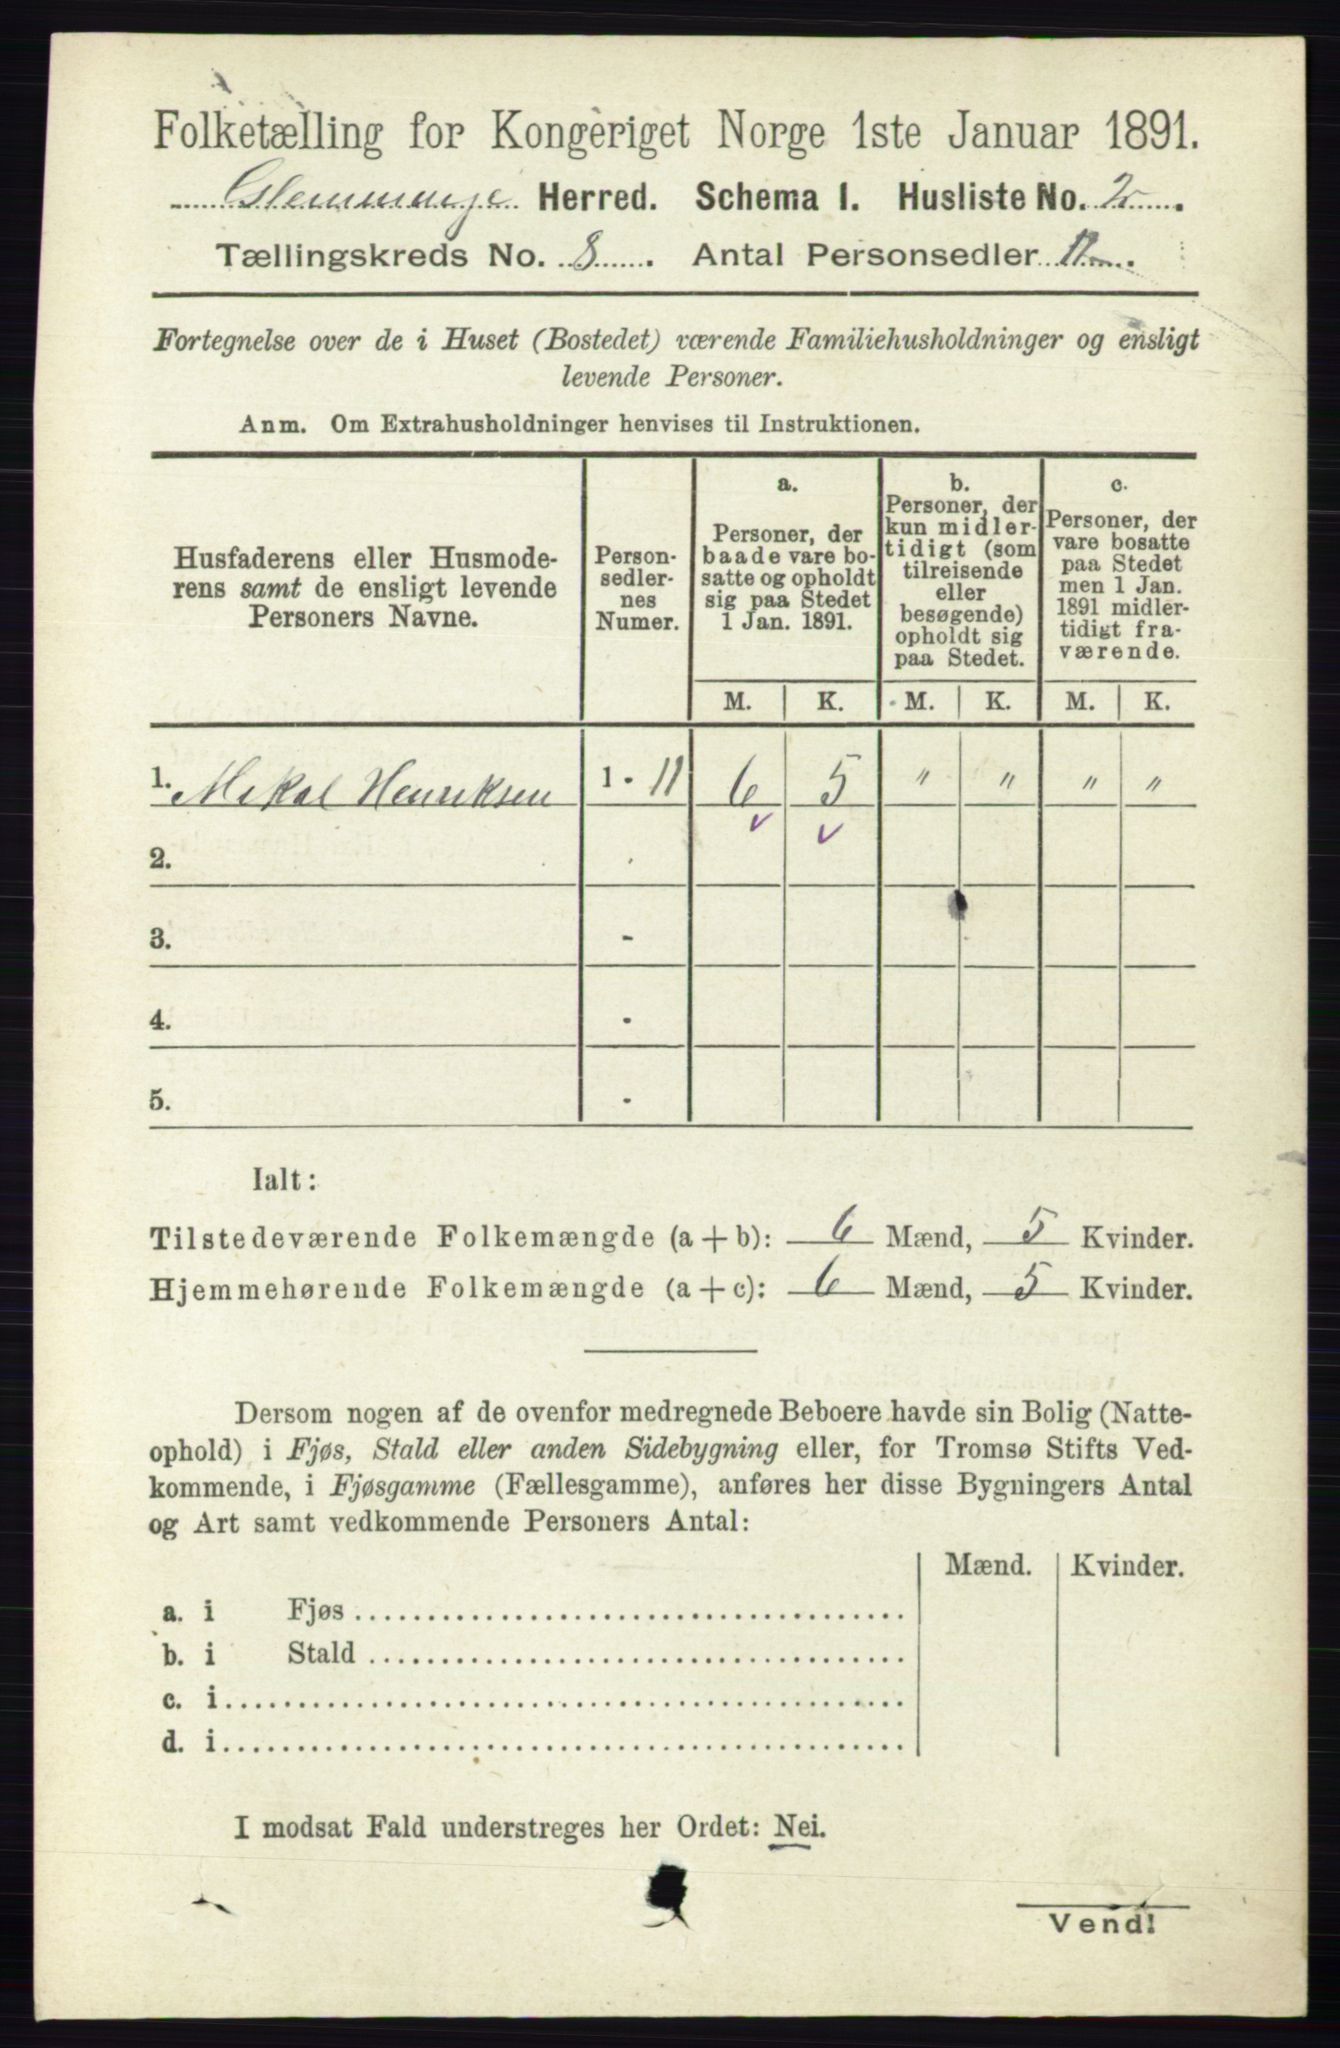 Folketælling for Kongeriget Norge 1ste Januar 1891.
Glemminge Herred. Schema I. Husliste No. 2.
Tællingskreds No. 8. Antal Personsedler 11.
Fortegnelse over de i Huset (Bostedet) værende Familiehusholdninger og ensligt
levende Personer.
Anm. Om Extrahusholdninger henvises til Instruktionen.
Husfaderens eller Husmode-
rens samt de ensligt levende
Personers Navne.
Person-
sedler-
nes
Numer.
a.
Personer, der
baade vare bo-
satte og opholdt
sig paa Stedet
1 Jan. 1891.
b.
Personer, der
kun midler-
tidigt (som
tilreisende
eller
besøgende)
opholdt sig
paa Stedet.
c.
Personer, der
vare bosatte
paa Stedet
men 1 Jan.
1891 midler-
tidigt fra-
værende.
M. K. M. K. M. K.
1. Mikal Henriksen 1 - 11 6 5 " " " "
2.
3. -
4. -
5. -
Ialt:
Tilstedeværende Folkemængde (a + b): 6 Mænd, 5 Kvinder.
Hjemmehørende Folkemængde (a + c): 6 Mænd, 5 Kvinder.
Dersom nogen af de ovenfor medregnede Beboere havde sin Bolig (Natte-
ophold) i Fjøs, Stald eller anden Sidebygning eller, for Tromsø Stifts Ved-
kommende, i Fjøsgamme (Fællesgamme), anføres her disse Bygningers Antal
og Art samt vedkommende Personers Antal:
Mænd. Kvinder.
a. i Fjøs
b. i Stald
c. i
d. i
I modsat Fald understreges her Ordet: Nei.
Vend!